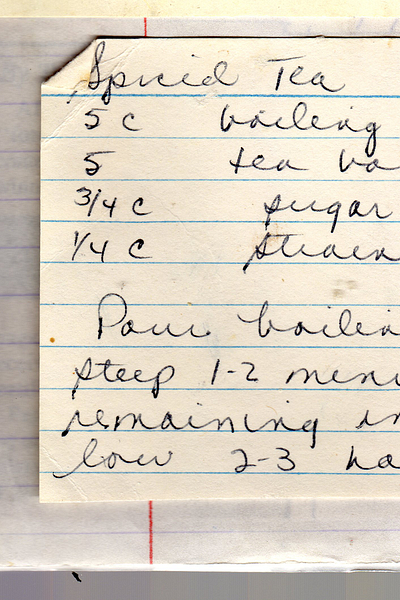 Spiced Tea
5 c boiling
5 tea ba
3/4 c sugar
1/4 c
Pour boilin
steep 1-2 minu
remaining in
low 2-3 ho